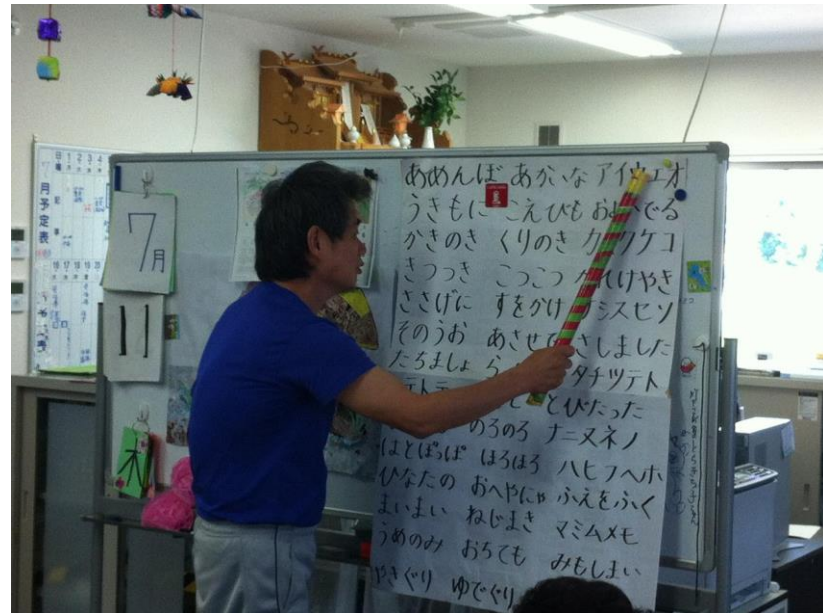 月予定表
7月
11
木
あめんぼ あかいな アイウエオ
うきもに こえびも およでる
かきのき くりのき カクケコ
きつつき こつこつ かれけやき
ささげに すをかけ サシスセソ
そのうお あさせで さしました
たちましょ ら タチツテト
とびたった
のろのろ ナニヌネノ
はとぽっぽ ほろほろ ハヒフヘホ
ひなたの おへやにゃ ふえをふく
まいまい ねじまき マミムメモ
うめのみ おちても みもしまい
やきぐり ゆでぐり